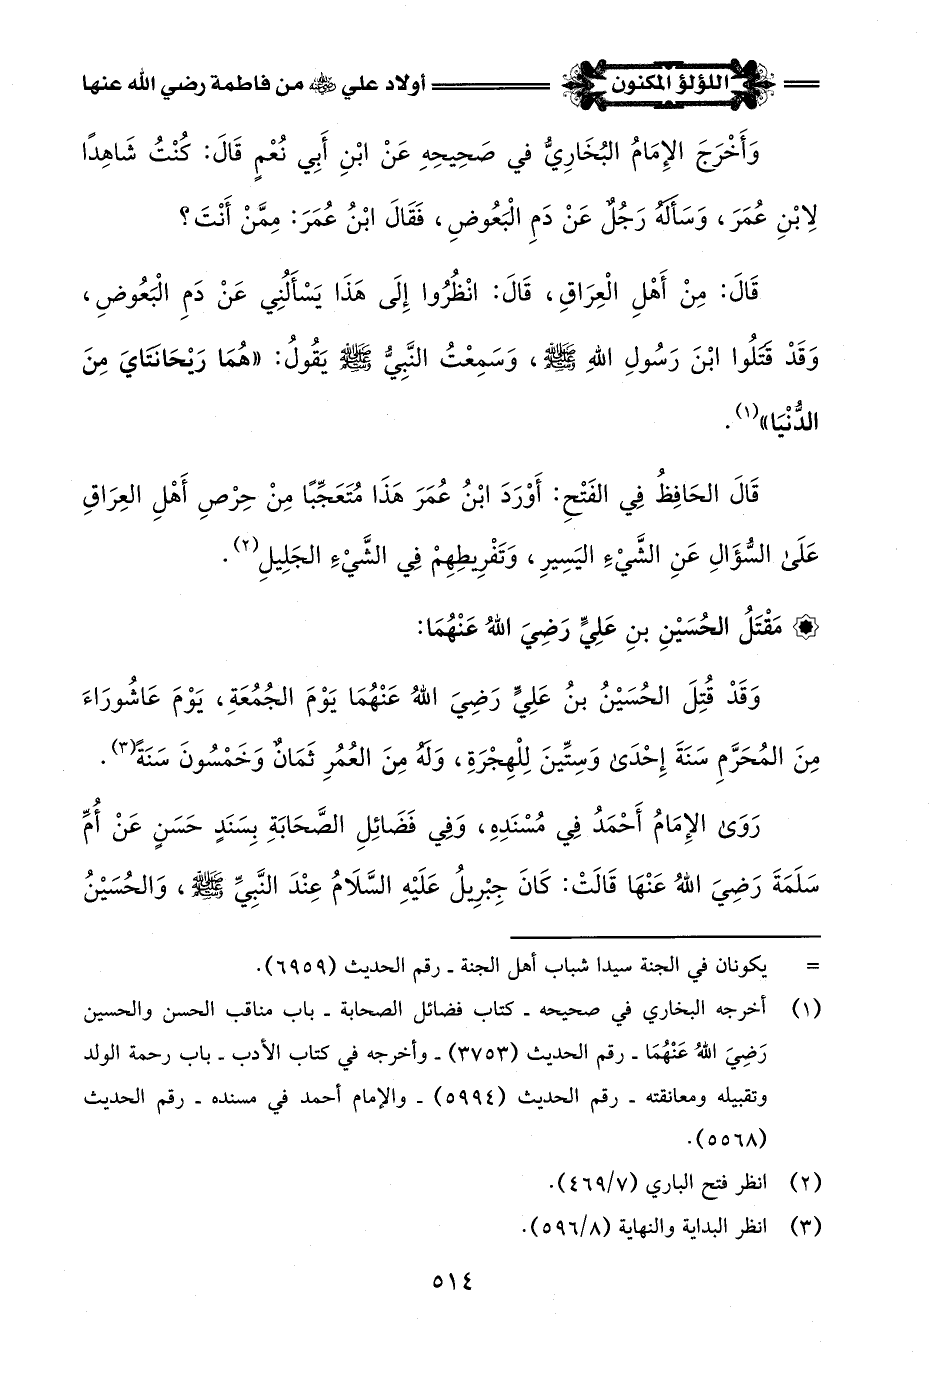 اللؤلؤ المكنون أولاد علي ﷺ من فاطمة رضي الله عنها
وَأَخْرَجَ الإِمَامُ البُخَارِيُّ في صَحِيحِهِ عَنْ ابْنِ أَبِي نُعْمٍ قَالَ: كُنْتُ شَاهِدًا
لِابْنِ عُمَرَ، وَسَأَلَهُ رَجُلٌ عَنْ دَمِ الْبَعُوضِ، فَقَالَ ابْنُ عُمَرَ: مِمَّنْ أَنْتَ؟
قَالَ: مِنْ أَهْلِ الْعِرَاقِ، قَالَ: انْظُرُوا إِلَى هَذَا يَسْأَلُنِي عَنْ دَمِ الْبَعُوضِ،
وَقَدْ قَتَلُوا ابْنَ رَسُولِ اللهِ ﷺ، وَسَمِعْتُ النَّبِيُّ ﷺ يَقُولُ: «هُمَا رَيْحَانَتَايَ مِنَ
الدُّنْيَا»(١).
قَالَ الحَافِظُ فِي الفَتْحِ: أَوْرَدَ ابْنُ عُمَرَ هَذَا مُتَعَجِّبًا مِنْ حِرْصِ أَهْلِ العِرَاقِ
عَلَىٰ السُّؤَالِ عَنِ الشَّيْءِ اليَسِيرِ، وَتَفْرِيطِهِمْ فِي الشَّيْءِ الجَلِيلِ(٢).
۞ مَقْتَلُ الحُسَيْنِ بنِ عَلِيٍّ رَضِيَ اللهُ عَنْهُمَا:
وَقَدْ قُتِلَ الحُسَيْنُ بنُ عَلِيٍّ رَضِيَ اللهُ عَنْهُمَا يَوْمَ الجُمُعَةِ، يَوْمَ عَاشُورَاءَ
مِنَ المُحَرَّمِ سَنَةَ إِحْدَىٰ وَسِتِّينَ لِلْهِجْرَةِ، وَلَهُ مِنَ العُمُرِ ثَمَانٌ وَخَمْسُونَ سَنَةً(٣).
رَوَىٰ الإِمَامُ أَحْمَدُ فِي مُسْنَدِهِ، وَفِي فَضَائِلِ الصَّحَابَةِ بِسَنَدٍ حَسَنٍ عَنْ أُمِّ
سَلَمَةَ رَضِيَ اللهُ عَنْهَا قَالَتْ: كَانَ جِبْرِيلُ عَلَيْهِ السَّلَامُ عِنْدَ النَّبِيِّ ﷺ، وَالحُسَيْنُ
= يكونان في الجنة سيدا شباب أهل الجنة ـ رقم الحديث (٦٩٥٩).
(١) أخرجه البخاري في صحيحه ـ كتاب فضائل الصحابة ـ باب مناقب الحسن والحسين
رَضِيَ اللهُ عَنْهُمَا ـ رقم الحديث (٣٧٥٣) ـ وأخرجه في كتاب الأدب ـ باب رحمة الولد
وتقبيله ومعانقته ـ رقم الحديث (٥٩٩٤) ـ والإمام أحمد في مسنده ـ رقم الحديث
(٥٥٦٨).
(٢) انظر فتح الباري (٤٦٩/٧).
(٣) انظر البداية والنهاية (٥٩٦/٨).
٥١٤